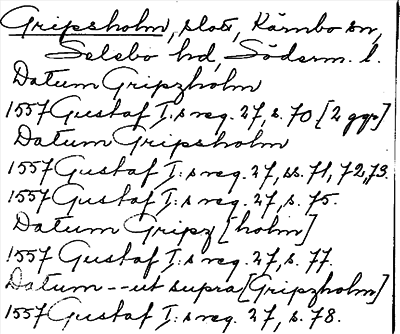 Gripsholm, slott, Kärnbo sn,
Selebo hd, Söderm. l.
Datum Gripzholm
1557 Gustaf I:s reg. 27, s. 70 [2 ggr]
Datum Gripsholm
1557 Gustaf I:s reg. 27, ss. 71, 72, 73.
1557 Gustaf I:s reg. 27, s. 75.
Datum Gripz [holm]
1557 Gustaf I:s reg. 27, s. 77.
Datum -- ut supra [Gripzholm]
1557 Gustaf I:s reg. 27, s. 78.